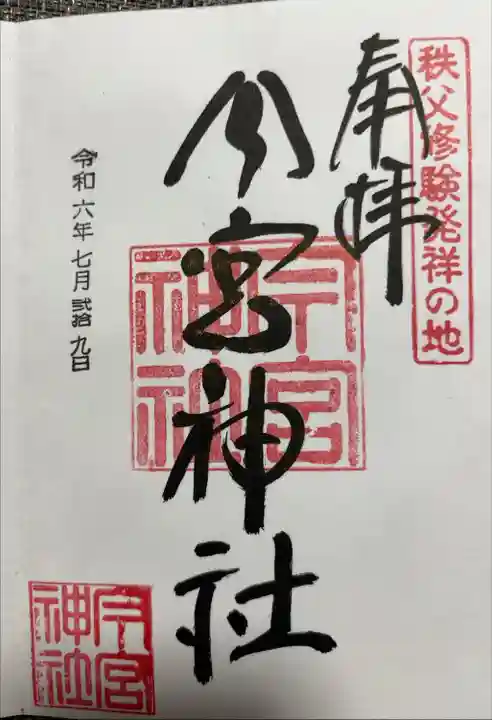 秩父修験発祥の地
奉拝
今宮神社
今宮
神社
令和六年七月弐拾九日
今宮
神社